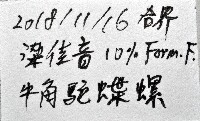 2018/11/16 合界
梁佳音 10% Form.F.
牛角駝蝶螺